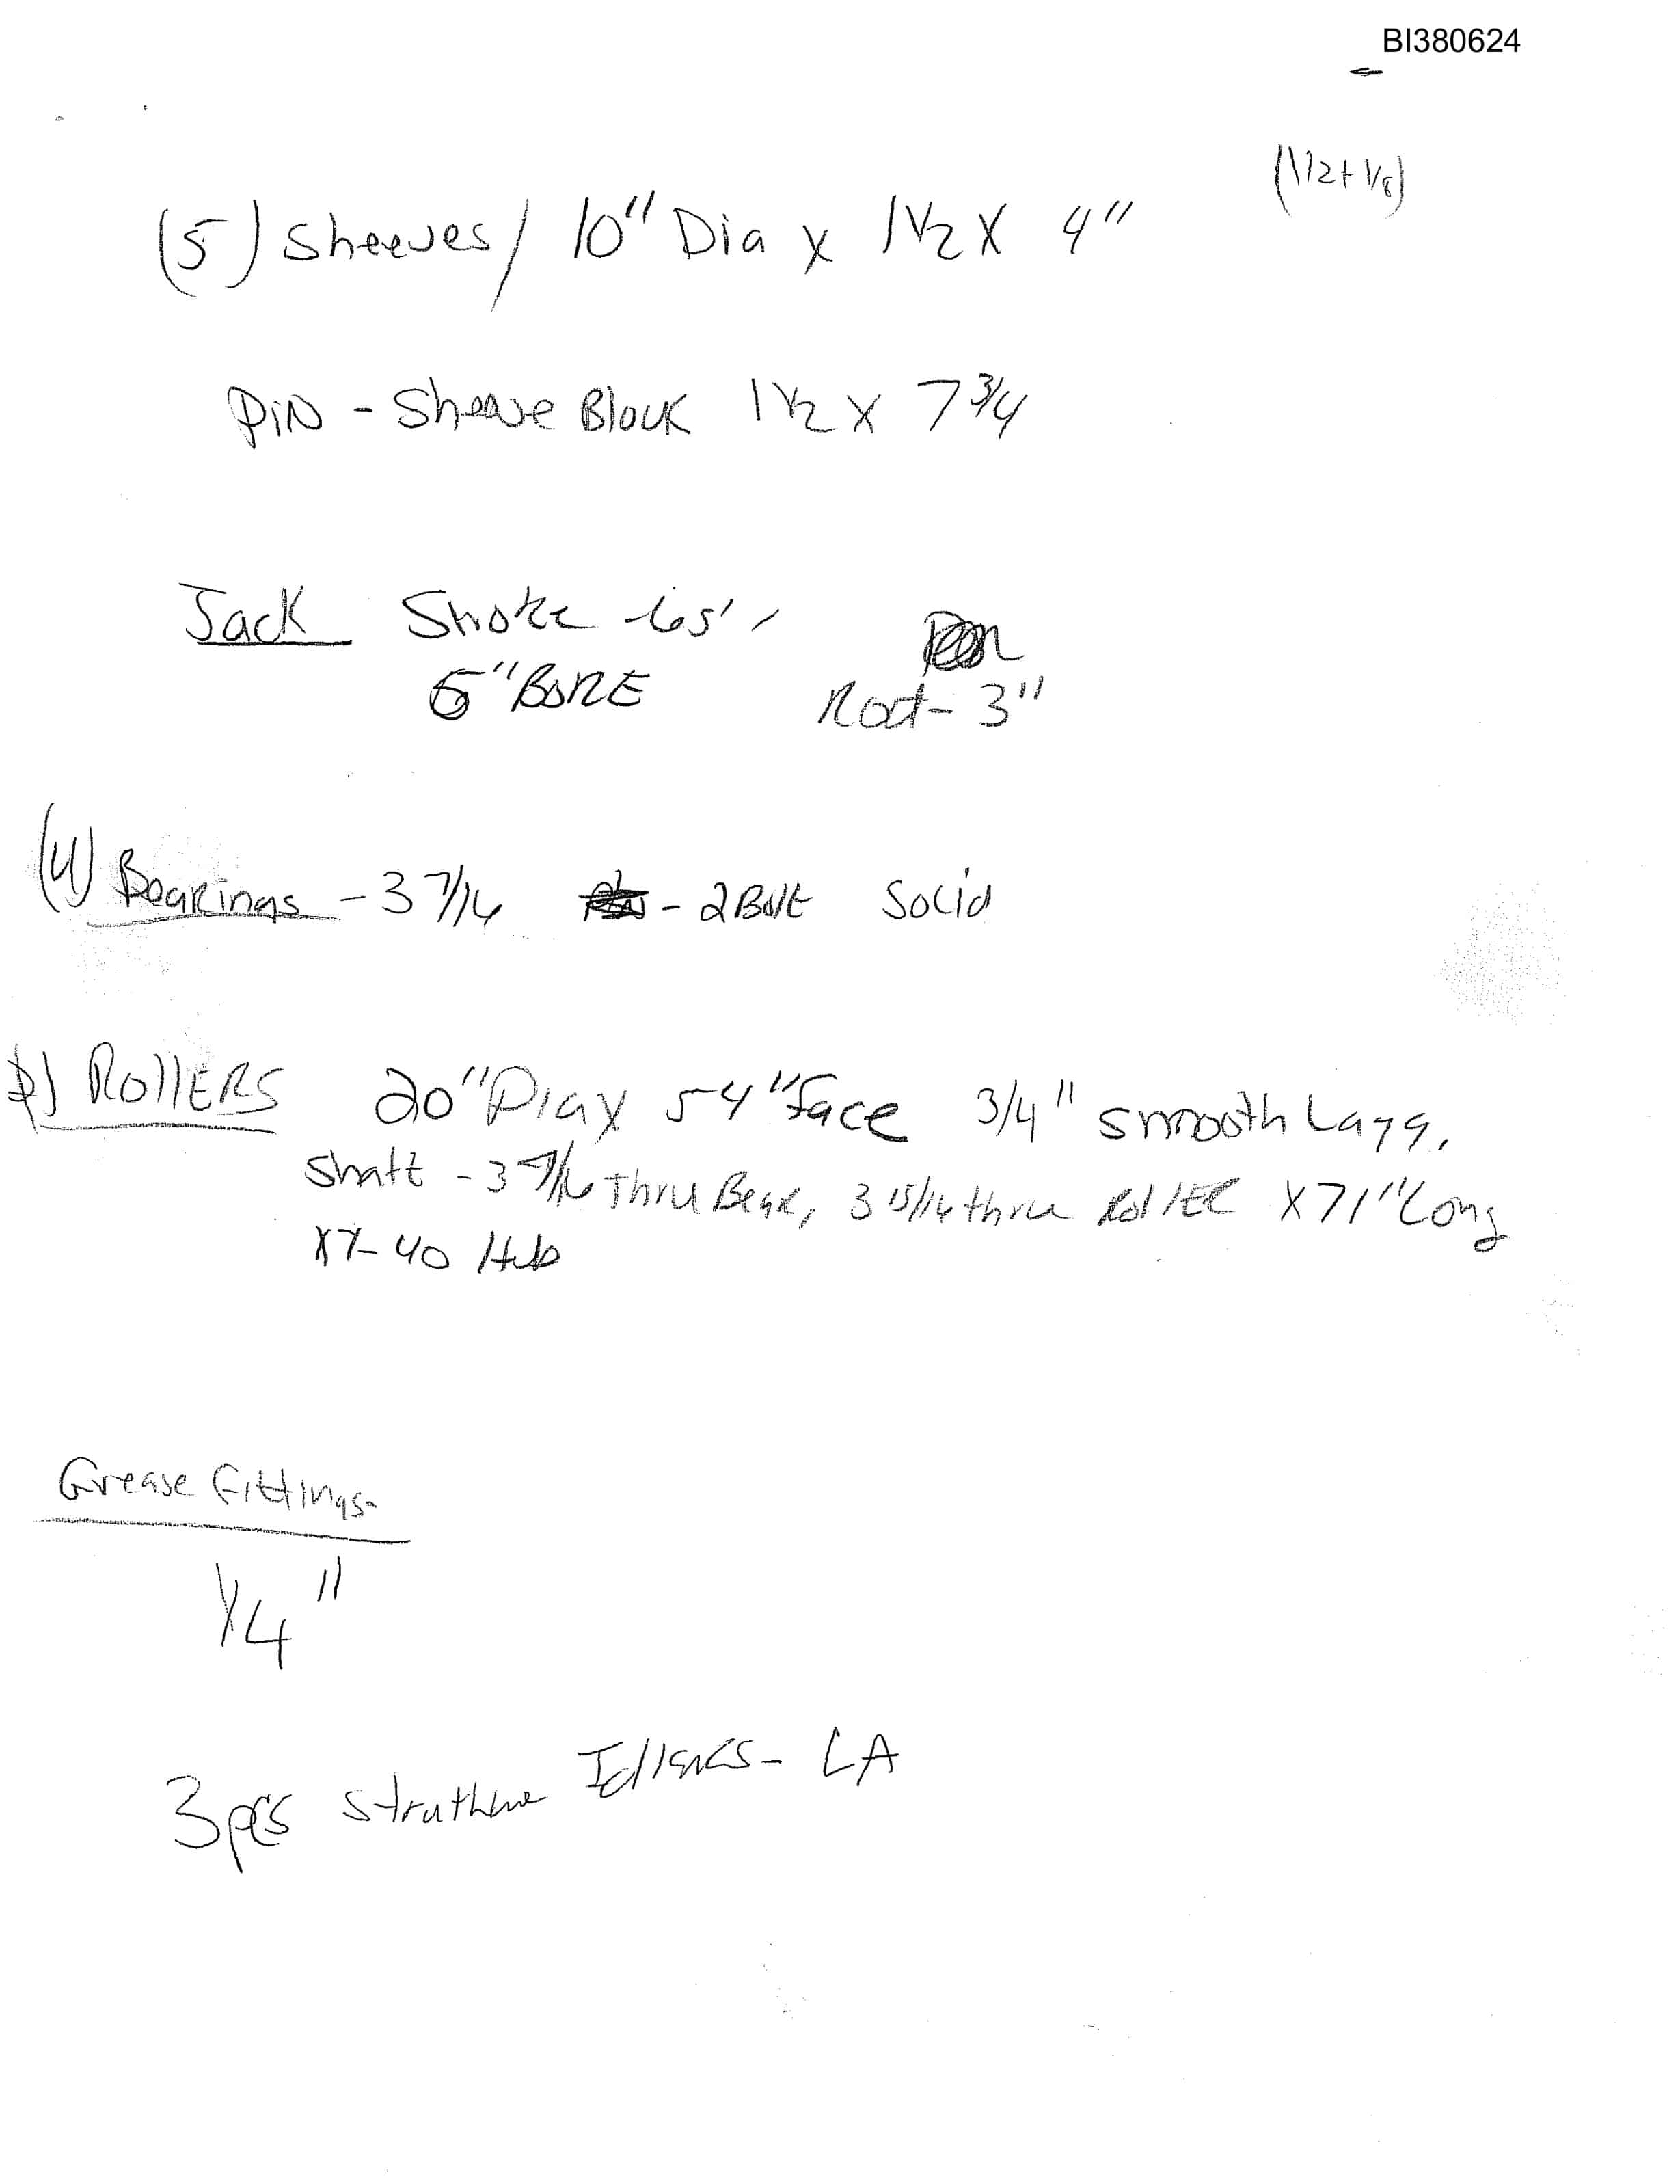 BI380624
(1/2 + 1/8)
(5) Sheeves / 10" Dia x 1 1/2 X 4"
PIN - Sheave Block 1 1/2 X 7 3/4
Jack Stroke - 65"
6" BORE Rod - 3"
(4) Bearings - 3 7/16 - 2 Bolt Solid
2) ROllERS 20" Dia x 54" face 3/4" smooth Lagg.
Shaft - 3 7/16 Thru Bear, 3 15/16 thru RollER X 71" Long
XT-40 Hub
Grease Fittings -
1/4"
3 pcs Idlers - LA